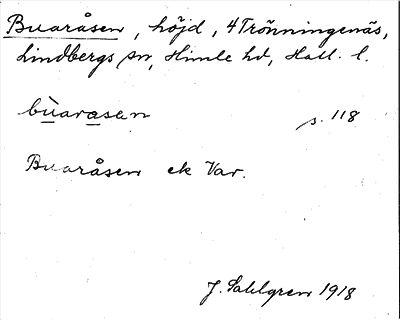 Buaråsen, höjd, 4 Trönningenäs,
Lindbergs sn, Himle hd, Hall. l.
bùarasan
s. 118
Buaråsen ek Var.
J. Sahlgren 1918